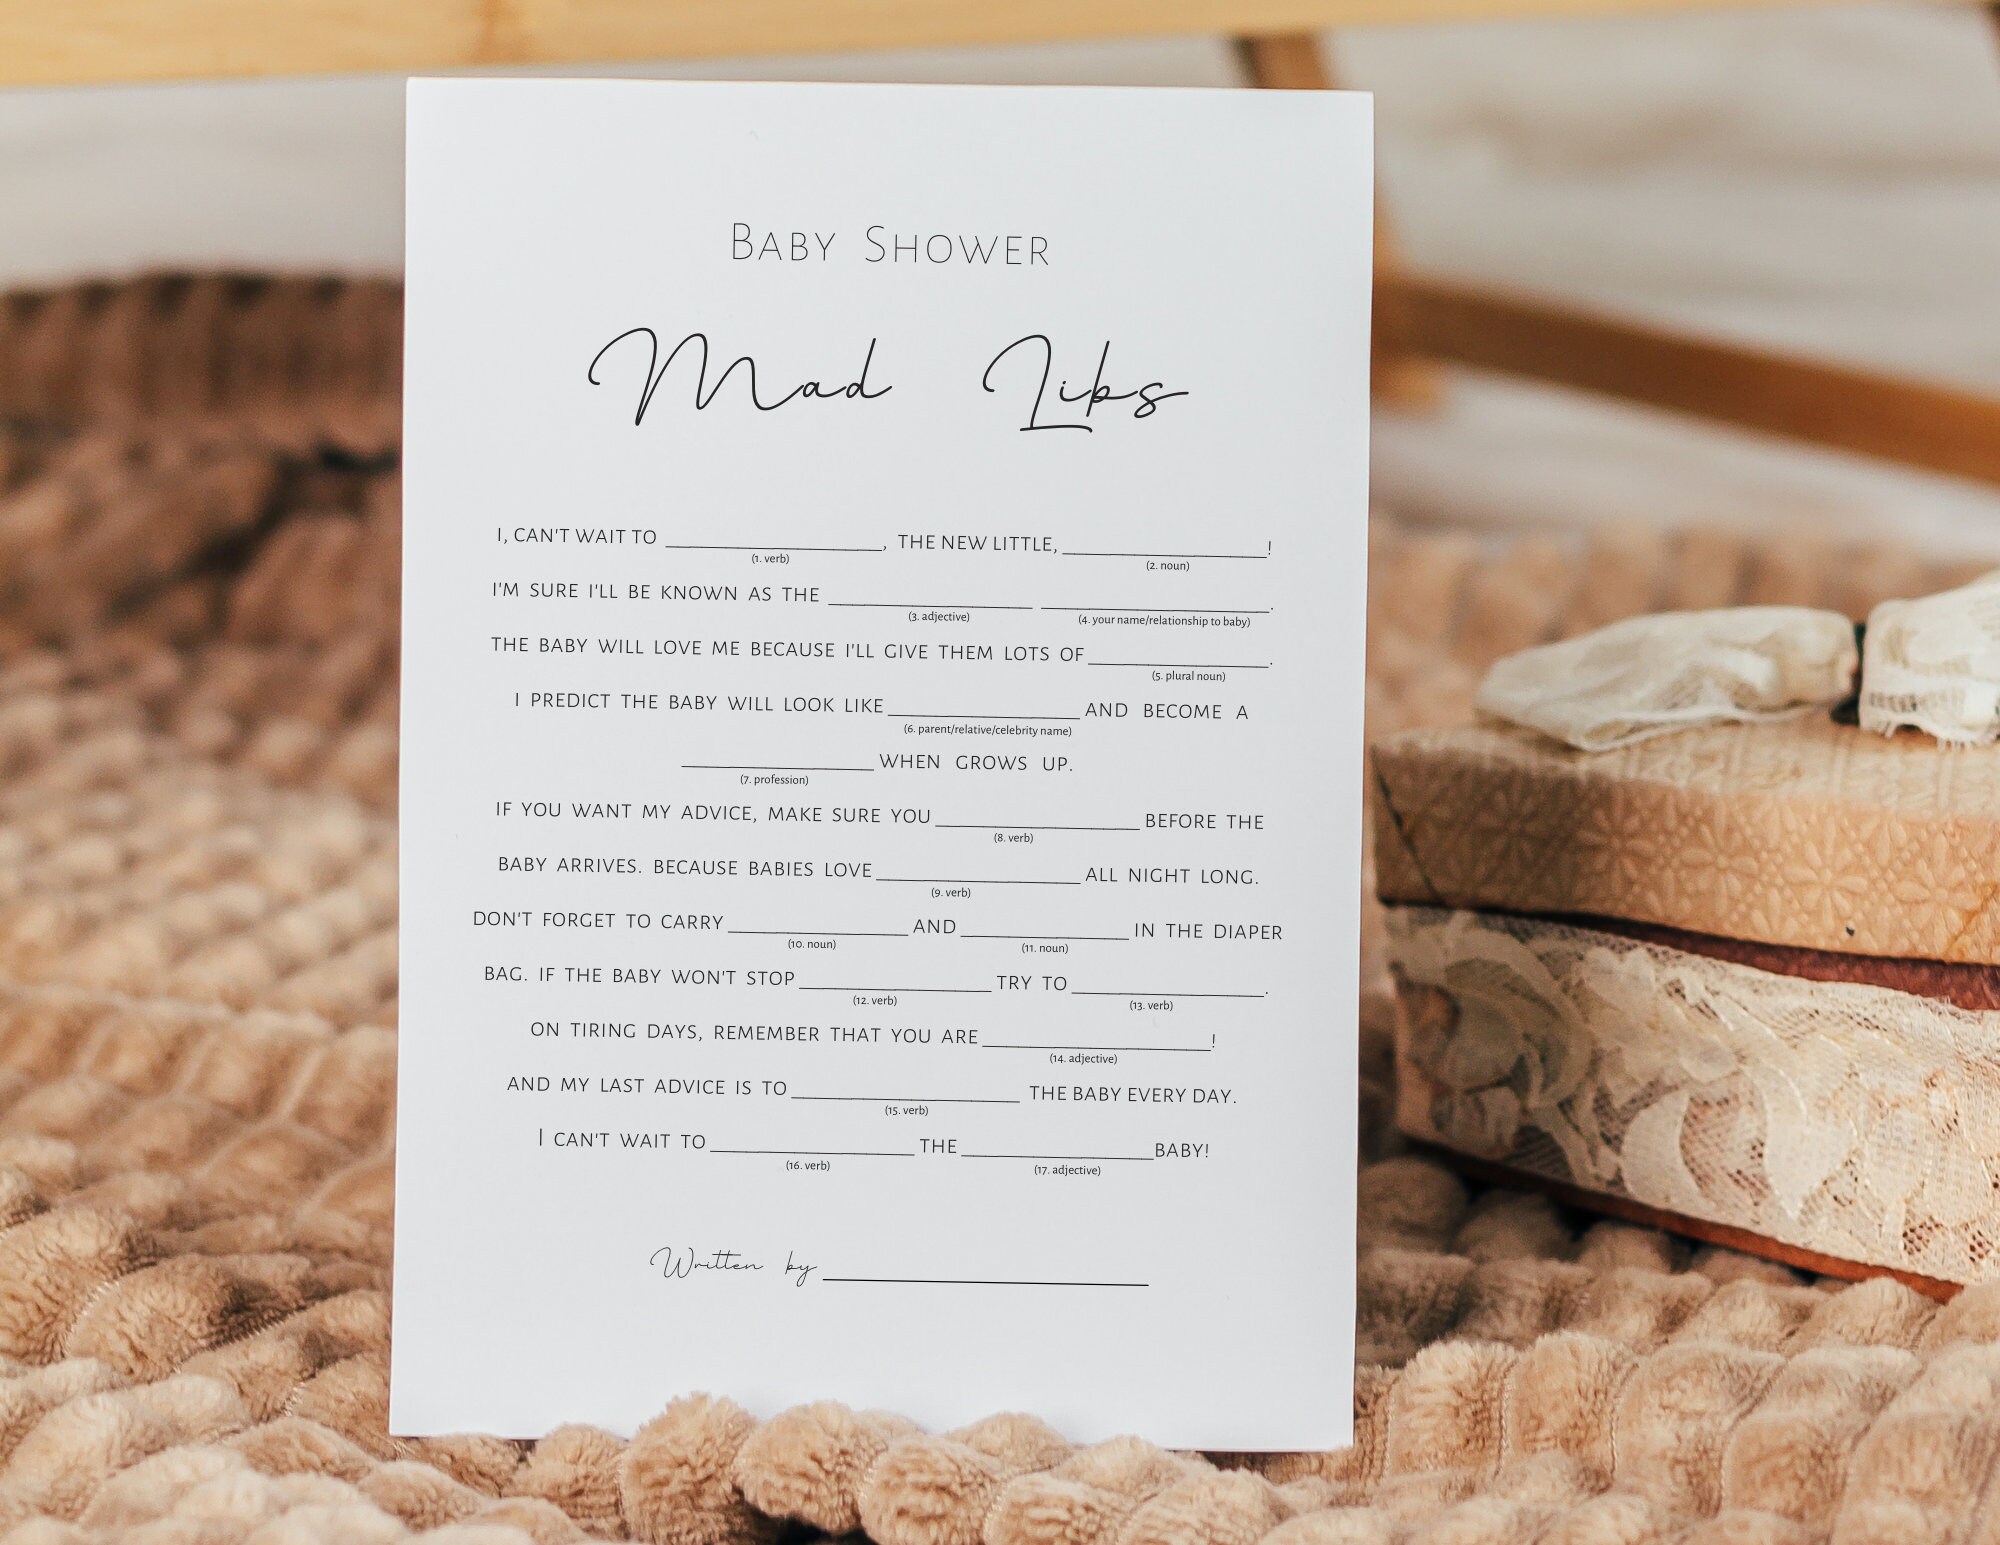 BABY SHOWER
Mad Libs
I, CAN'T WAIT TO ____________, THE NEW LITTLE, ____________!
(1. verb) (2. noun)
I'M SURE I'LL BE KNOWN AS THE ____________ ____________.
(3. adjective) (4. your name/relationship to baby)
THE BABY WILL LOVE ME BECAUSE I'LL GIVE THEM LOTS OF ____________.
(5. plural noun)
I PREDICT THE BABY WILL LOOK LIKE ____________ AND BECOME A
(6. parent/relative/celebrity name)
____________ WHEN GROWS UP.
(7. profession)
IF YOU WANT MY ADVICE, MAKE SURE YOU ____________ BEFORE THE
(8. verb)
BABY ARRIVES. BECAUSE BABIES LOVE ____________ ALL NIGHT LONG.
(9. verb)
DON'T FORGET TO CARRY ____________ AND ____________ IN THE DIAPER
(10. noun) (11. noun)
BAG. IF THE BABY WON'T STOP ____________ TRY TO ____________.
(12. verb) (13. verb)
ON TIRING DAYS, REMEMBER THAT YOU ARE ____________!
(14. adjective)
AND MY LAST ADVICE IS TO ____________ THE BABY EVERY DAY.
(15. verb)
I CAN'T WAIT TO ____________ THE ____________ BABY!
(16. verb) (17. adjective)
Written by ____________